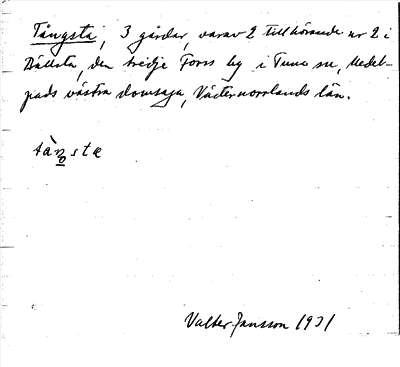 Tångsta, 3 gårdar, varav 2 tillhörande nr 2 i
Bällsta, den tredje Forss by i Tuna sn, Medel-
pads västra domsaga, Västernorrlands län.
tàŋsta
Valter Jansson 1931